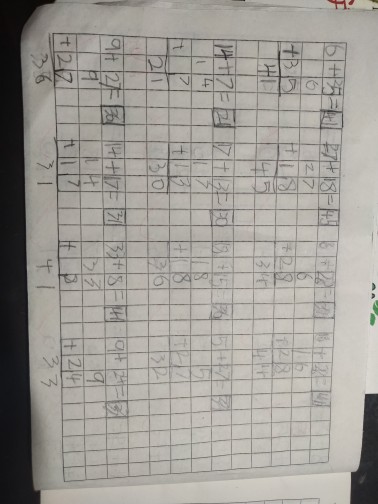 6+35=41 27+18=45 6+28=34 16+28=44
6 27 6 16
+35 +18 +28 +28
41 45 34 44
14+7=21 17+13=30 18+18=36 5+27=32
14 17 18 5
+7 +13 +18 +27
21 30 36 32
9+27=36 14+17=31 33+8=41 9+24=33
9 14 33 9
+27 +17 +8 +24
36 31 41 33